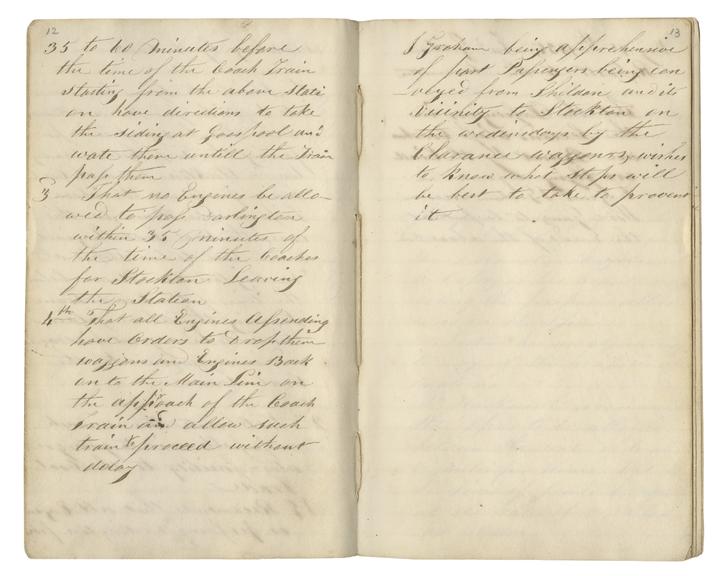 12
35 to 60 minutes before
the time of the Coach Train
starting from the above stati
on have directions to take
the siding at Goospool and
wate there untill the Train
pass them
3 That no Engines be allo-
wed to pass Darlington
within 35 minutes of
the time of the Coaches
for Stockton Leaving
the Station
4th That all Engines Assending
have Orders to drop their
waggons and Engines Back
on to the Main Line on
the approach of the Coach
Train and allow such
train to proceed without
delay
13
J Graham being apprehensive
of part Passengers being con
veyed from Shildon and its
Vicinity to Stockton on
the wedensdays by the
Clarance waggons, wishes
to know what steps will
be best to take to prevent
it